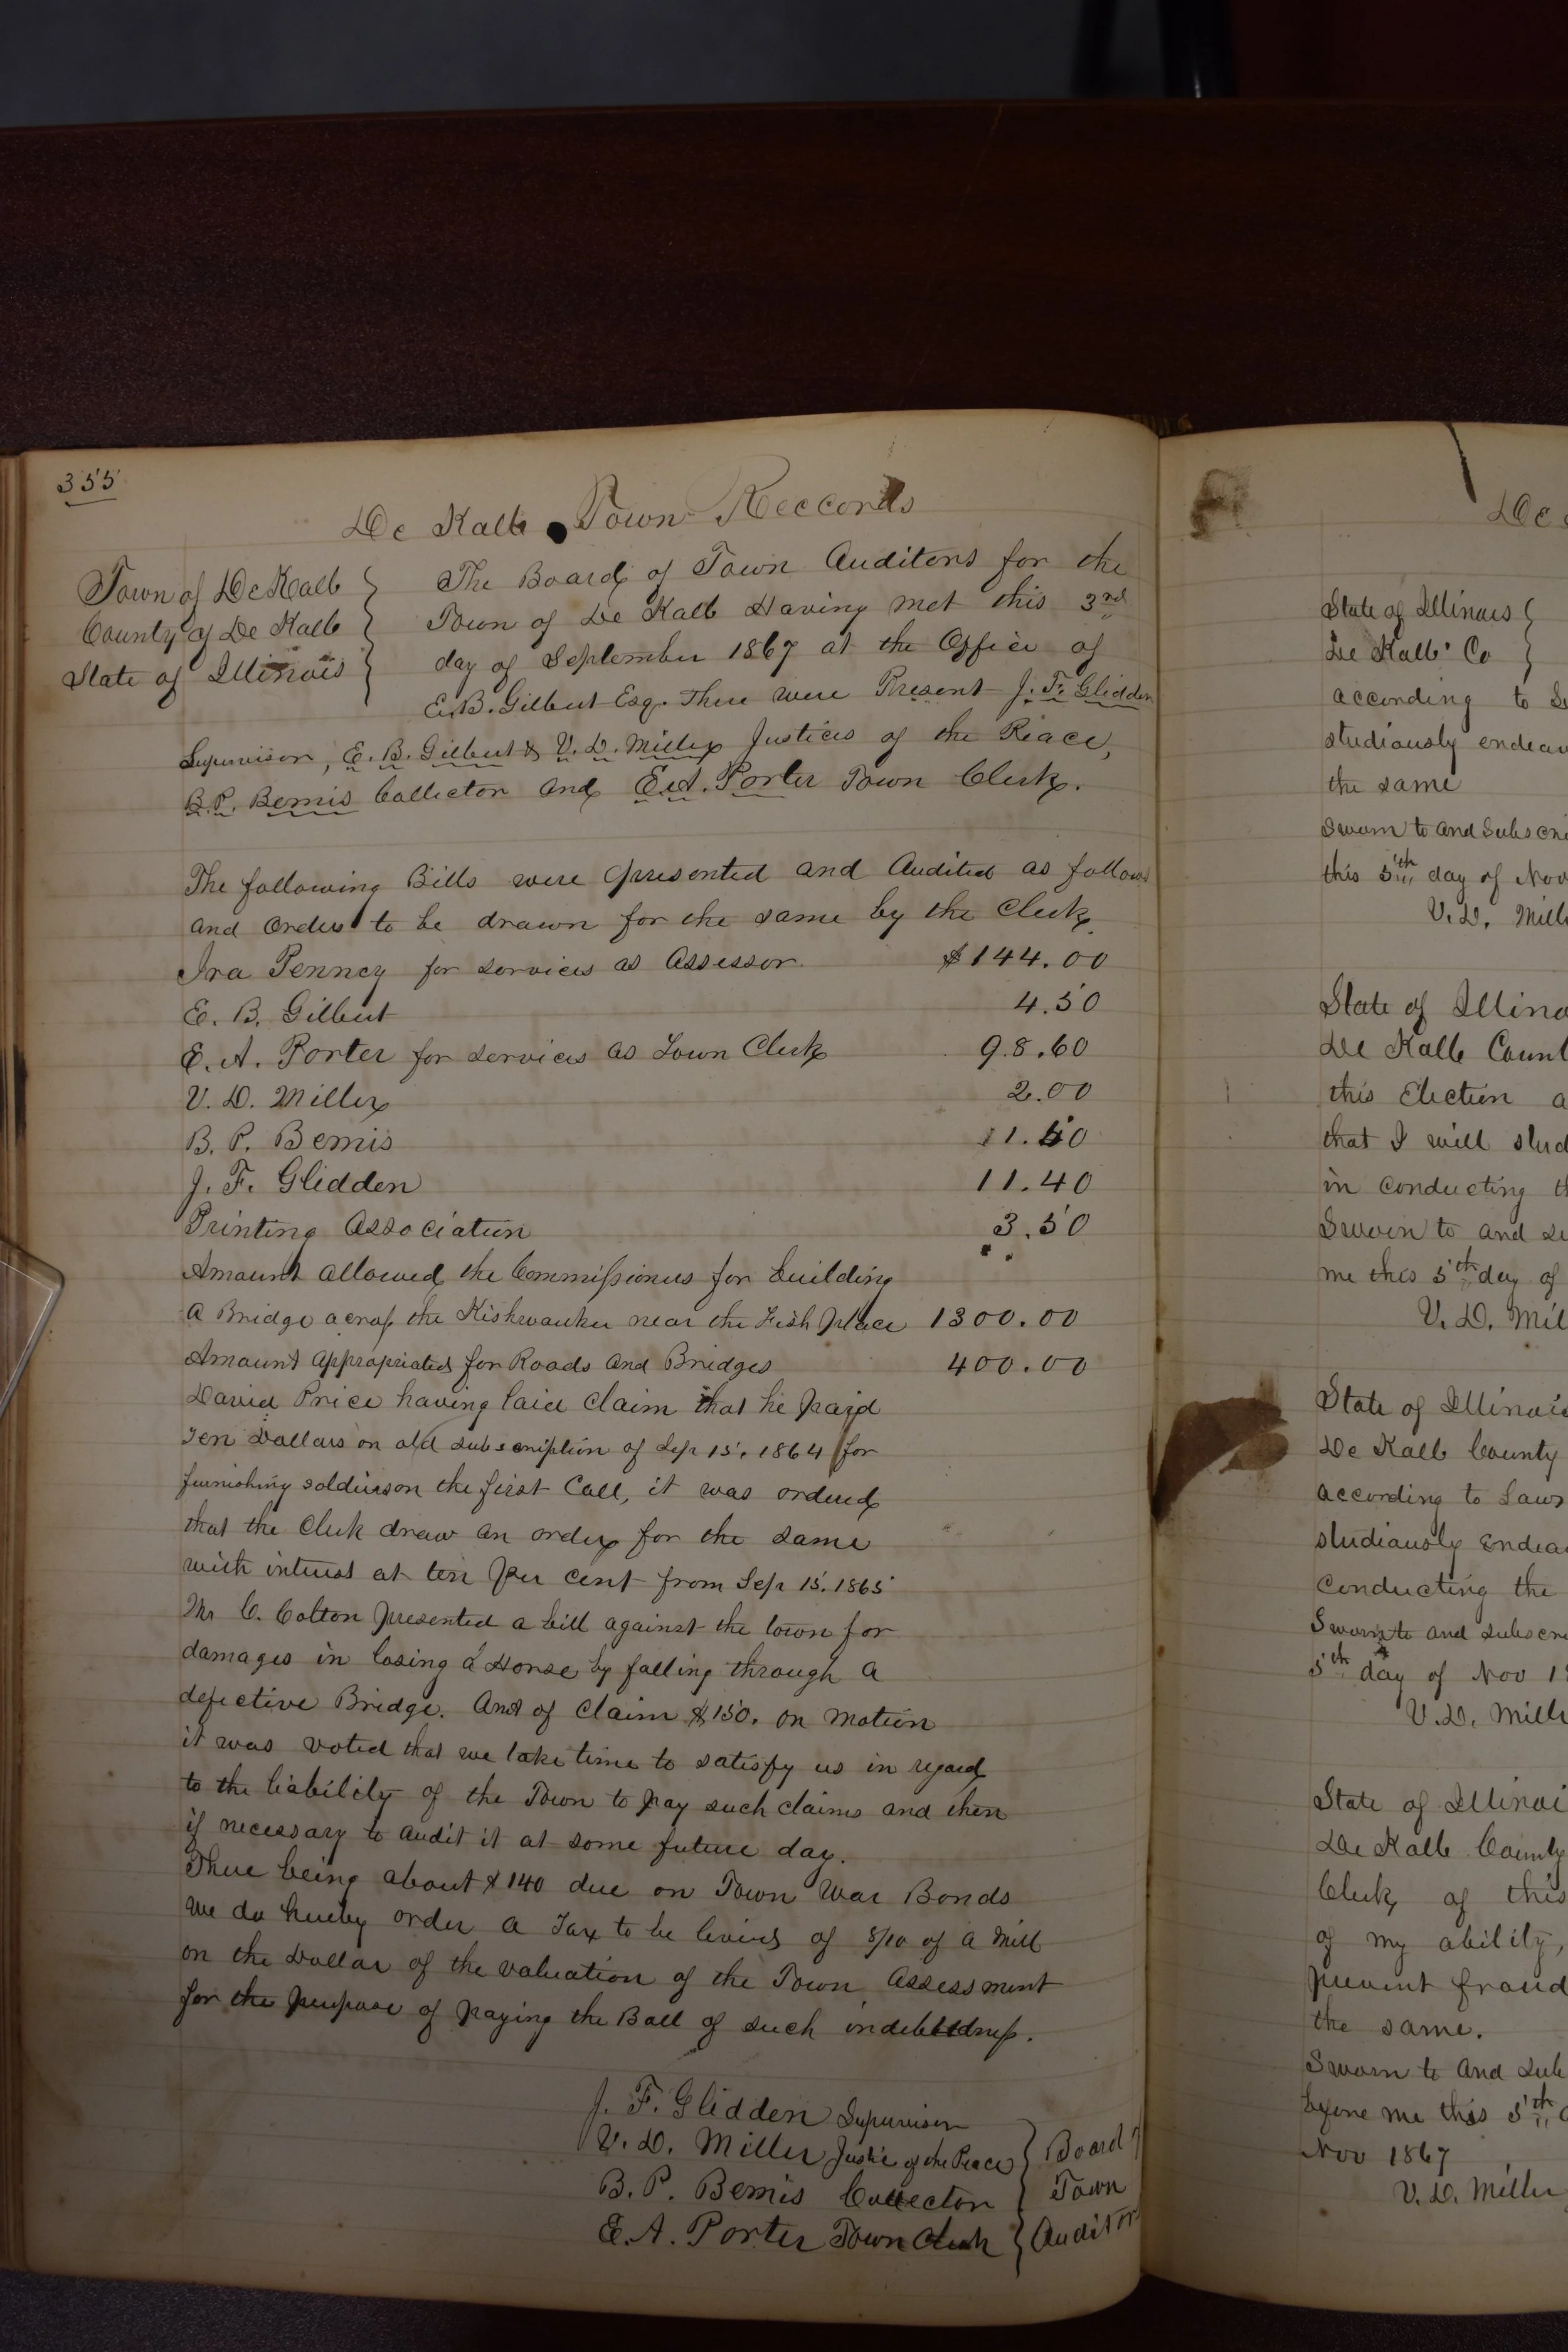 355
De Kalb Town Reccords
Town of De Kalb
County of De Kalb
State of Illinois
The Board of Town Auditors for the
Town of De Kalb Having met this 3rd
day of September 1867 at the Office of
E.B. Gilbert Esq. There were Present J. F. Glidden
Supervisor, E. B. Gilbert & V. D. Miller Justices of the Peace,
B.P. Bemis Collector and E.A. Porter Town Clerk.
The following Bills were presented and Audited as follows
and orders to be drawn for the same by the Clerk
Ira Penney for services as Assessor $144.00
E. B. Gilbert 4.50
E. A. Porter for services as Town Clerk 98.60
V. D. Miller 2.00
B. P. Bemis 11.50
J. F. Glidden 11.40
Printing Association 3.50
Amount allowed the Commissioners for building
a Bridge across the Kishwaukee near the Fish place 1300.00
Amount appropriated for Roads and Bridges 400.00
David Price having laid claim that he paid
Ten Dollars on old subscription of Sep 15, 1864 for
furnishing soldiers on the first Call, it was ordered
that the Clerk draw an order for the same
with interest at ten per cent from Sep 15, 1865
Mr C. Colton presented a bill against the town for
damages in losing a Horse by falling through a
defective Bridge. Amt of Claim $150. on motion
it was voted that we take time to satisfy us in regard
to the liability of the Town to pay such claims and then
if necessary to audit it at some future day.
There being about $140 due on Town War Bonds
we do hereby order a Tax to be levied of 8/10 of a Mill
on the Dollar of the valuation of the Town Assessment
for the purpose of paying the Ball of such indebtedness.
J. F. Glidden Supervisor
V. D. Miller Justice of the Peace
B. P. Bemis Collector
E. A. Porter Town Clerk
Board
Town
Auditors
De
State of Illinois
De Kalb Co
according to
studiously
the same
Sworn to and
this 5th day of Nov
V. D.
State of
De Kalb
this Election
that I will
in conducting
Sworn to and
me this 5th day of
V. D.
State of Illinois
De Kalb County
according to Law
studiously
conducting the
Sworn to and
5th day of Nov
V. D.
State of
De Kalb County
Clerk of this
of my ability,
prevent fraud
the same.
Sworn to and
before me this 5th
Nov 1867
V. D. Miller